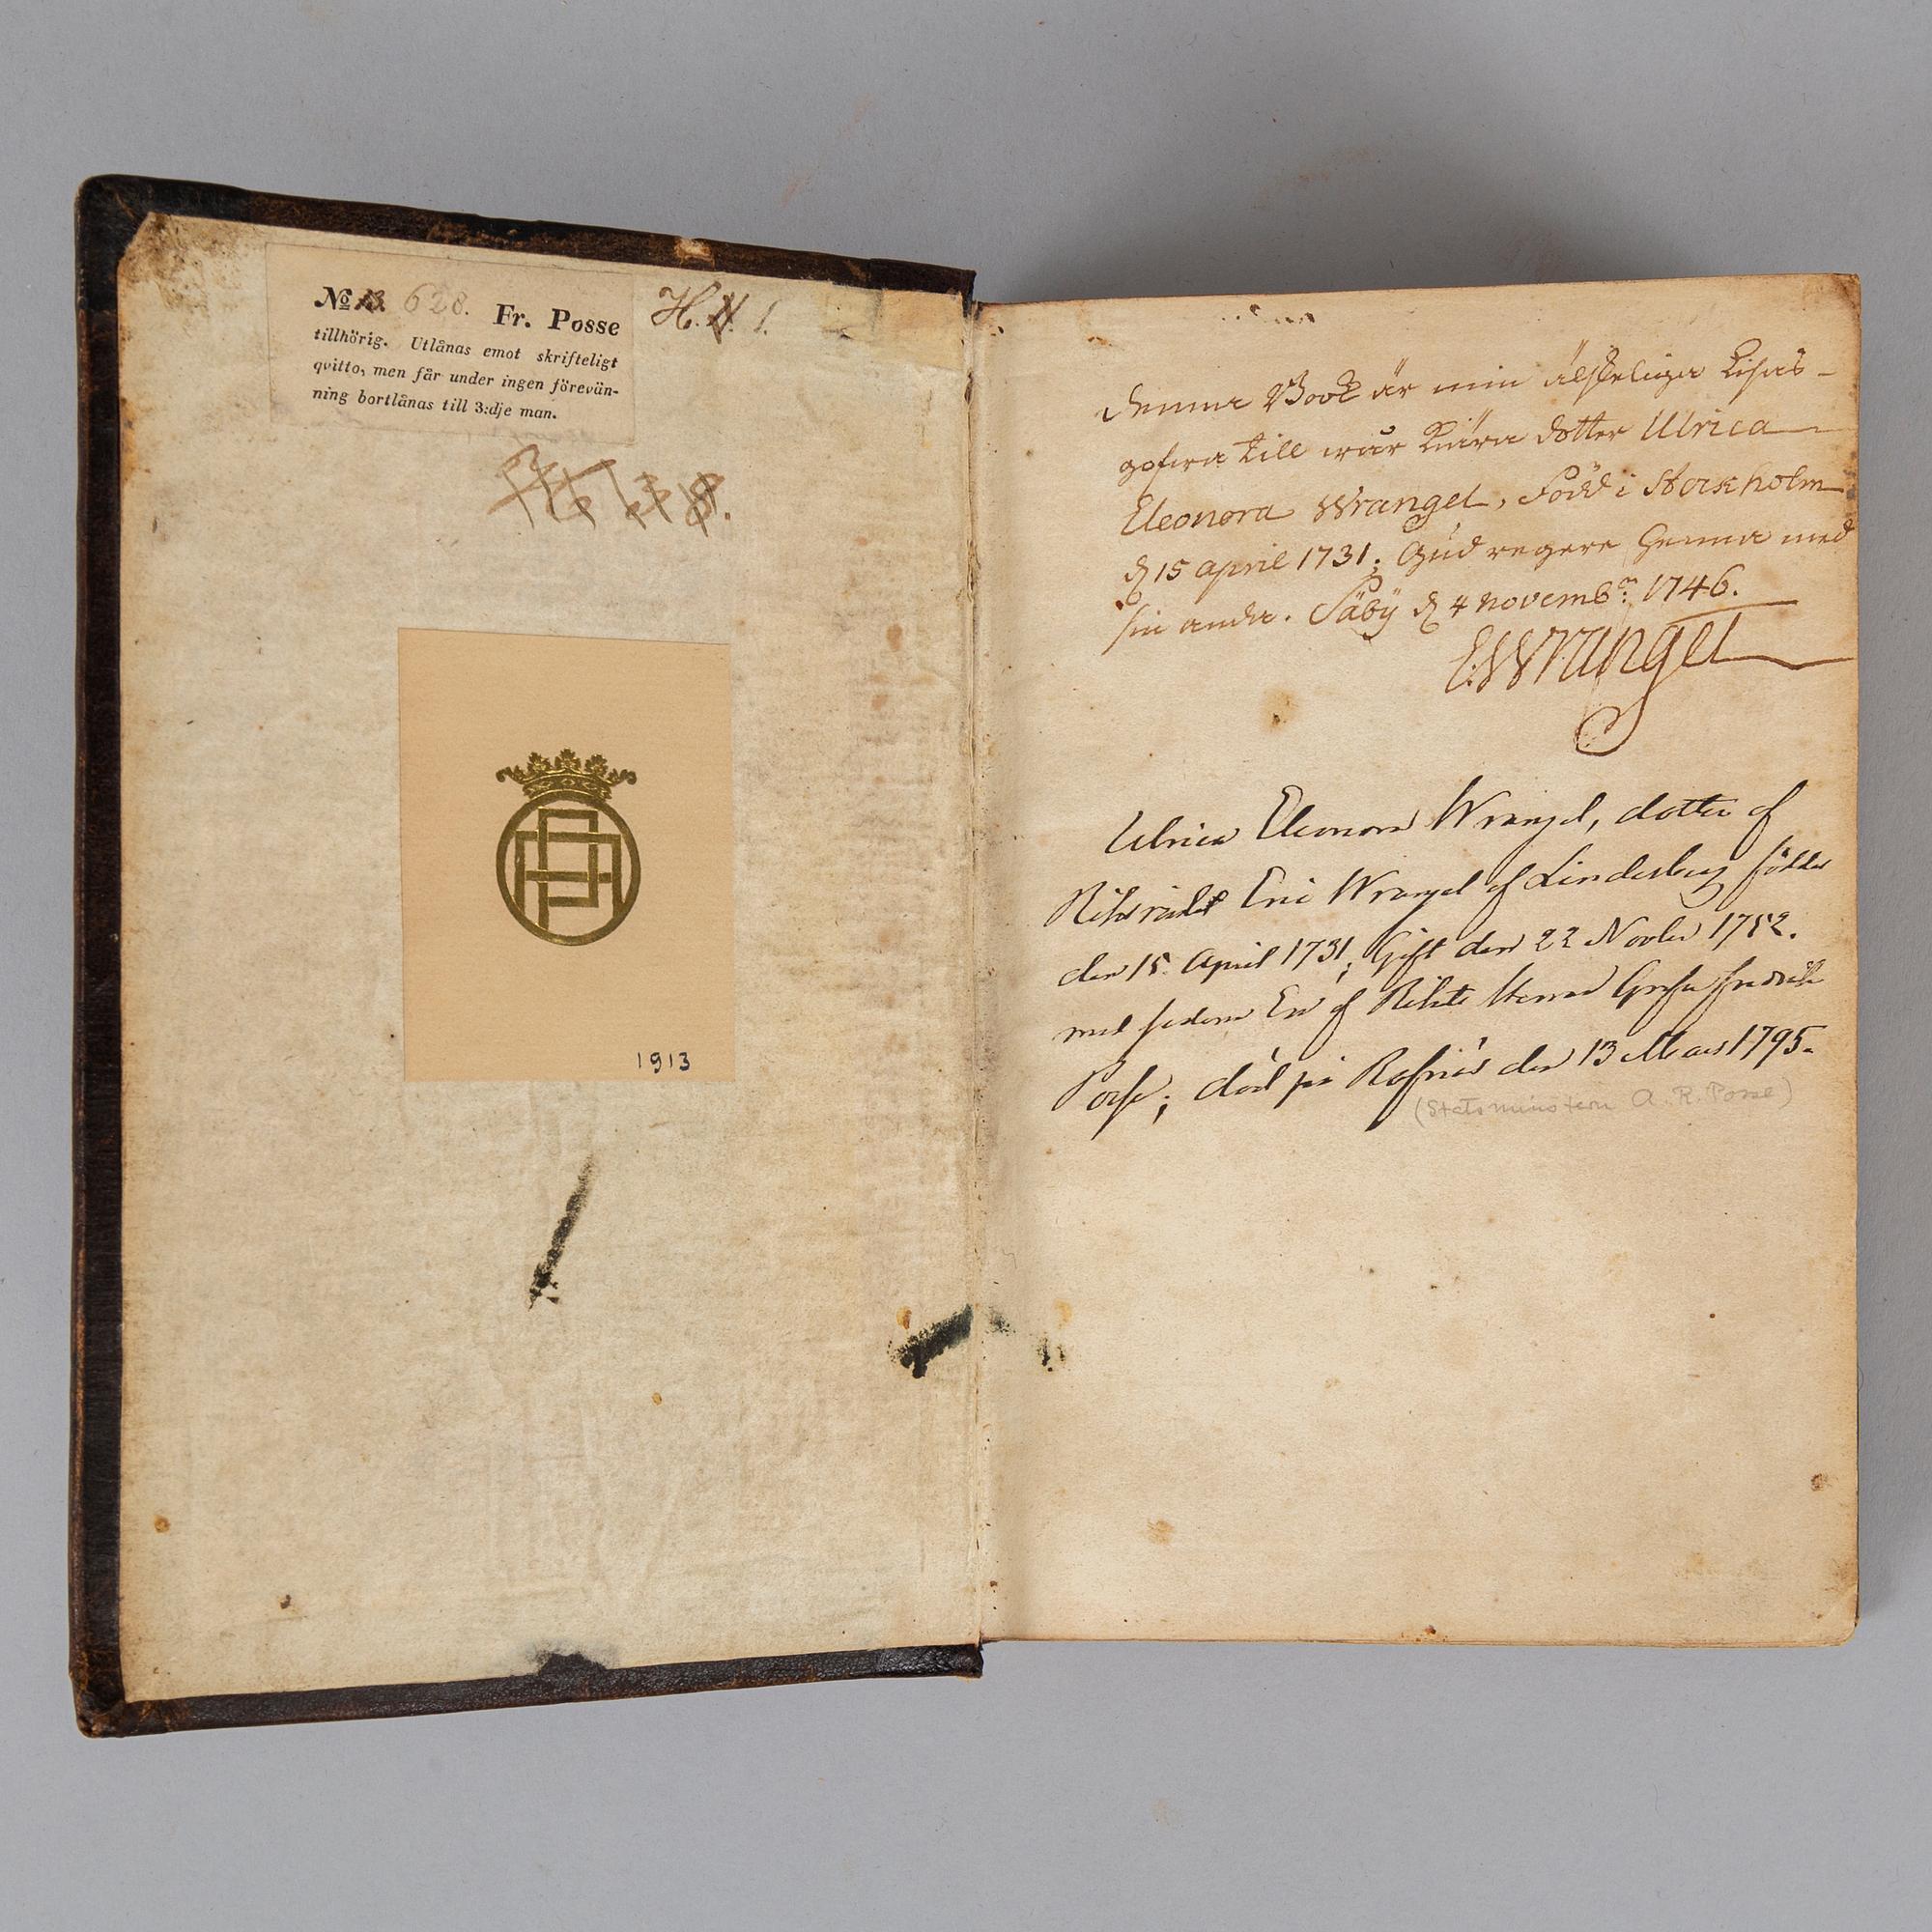 No 628. Fr. Posse
tillhörig. Utlånas emot skrifteligt
qvitto, men får under ingen förevän-
ning bortlånas till 3:dje man.
H. 1.
1913
Denna Book är min älskeliga Lisas
gåfva till wår kiära dotter Ulrica
Eleonora Wrangel, Född i Stockholm
d 15 april 1731; Gud regere henna med
sin anda. Säby d 4 novembr: 1746.
E:Wrangel
Ulrica Eleonora Wrangel, dotter af
Riksrådet Eric Wrangel af Lindeberg föddes
den 15 April 1731; Gift den 22 Novber 1752.
med sedermera En af Rikets Herrar Grefve Fredrik
Posse; död på Rosnäs den 13 Mars 1795.
(Statsministern A. R. Posse)